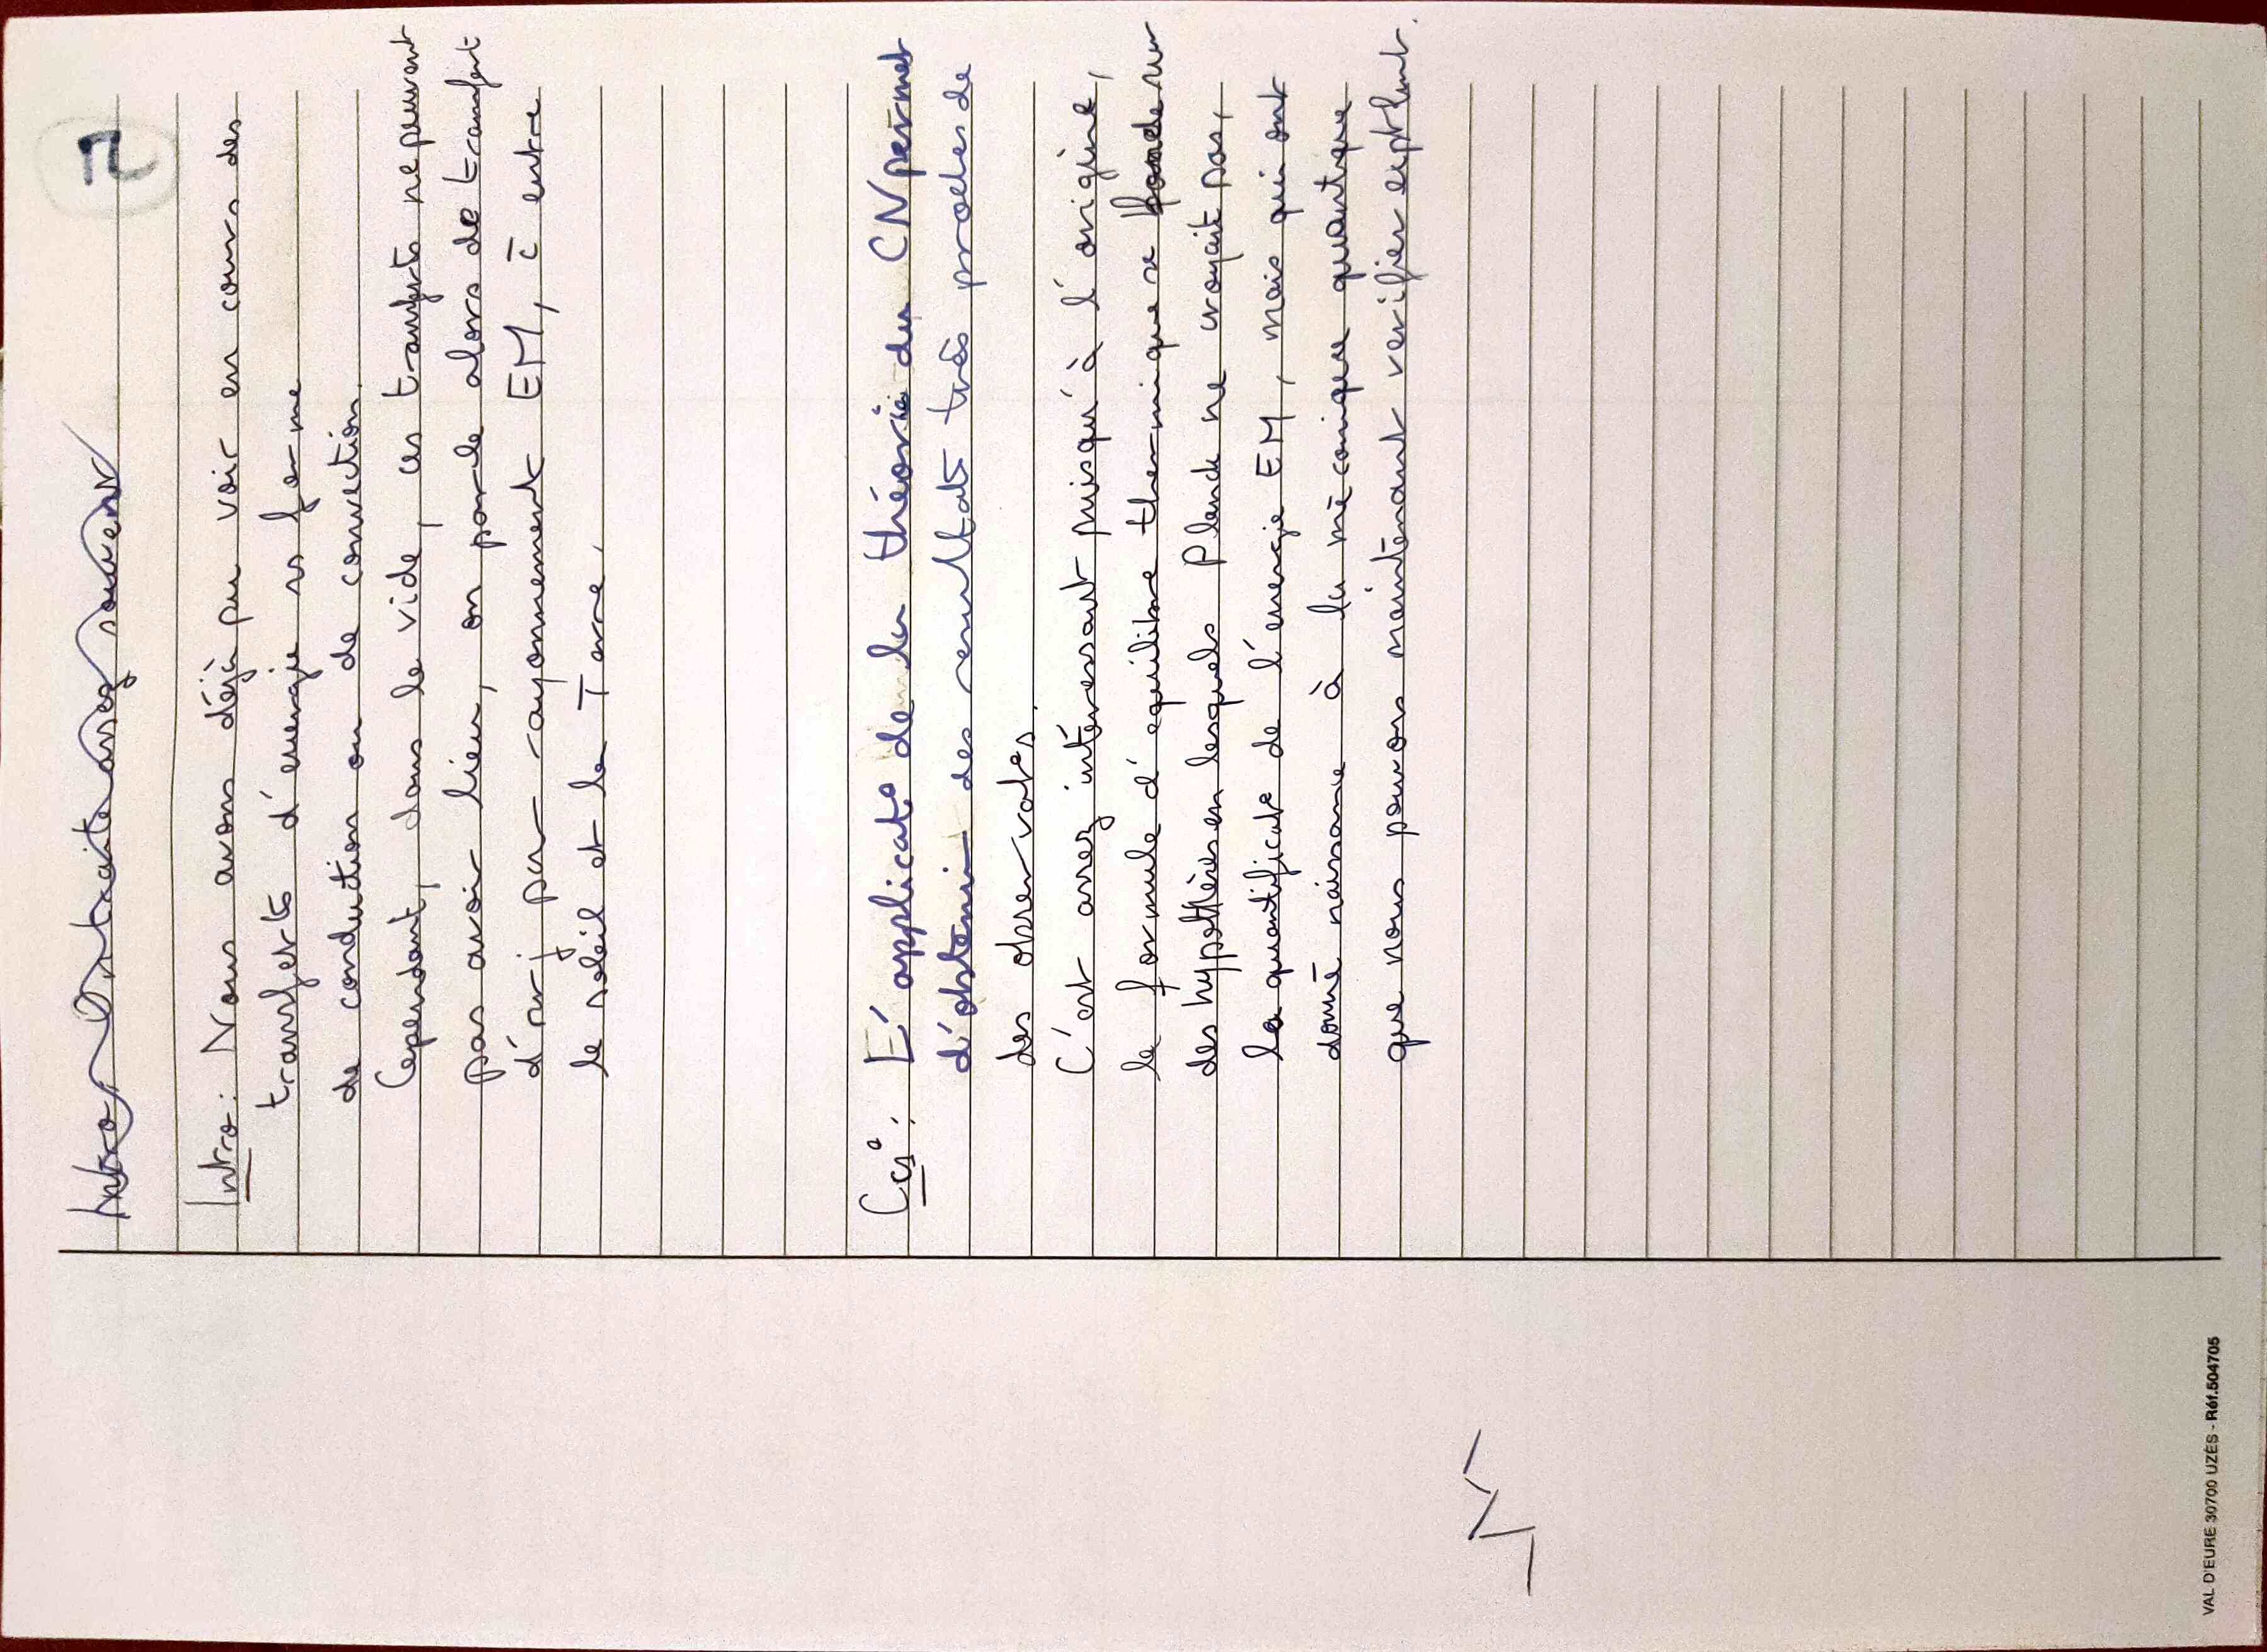 Intro, On traite assez souvent
Intro : Nous avons déjà pu voir en cours des
transferts d'energie ss forme
de conduction ou de convection.
Cependant, dans le vide, ces transferts ne peuvent
pas avoir lieu, on parle alors de transfert
d'nrj par rayonnement EM, c̄ entre
le soleil et la Terre.
Ccl° : L'applicat° de la théorie du CN permet
d'obtenir des resultats très proches de
des observat°s.
C'est assez intéressant puisqu'à l'origine,
la formule d'equilibre thermique se fonde sur
des hypothèses en lesquels Planck ne croyait pas,
la quantificat° de l'energie EM, mais qui ont
donné naissance à la mécanique quantique
que nous pouvons maintenant verifier exptlmt.
VAL D'EURE 30700 UZÈS - Réf.504705